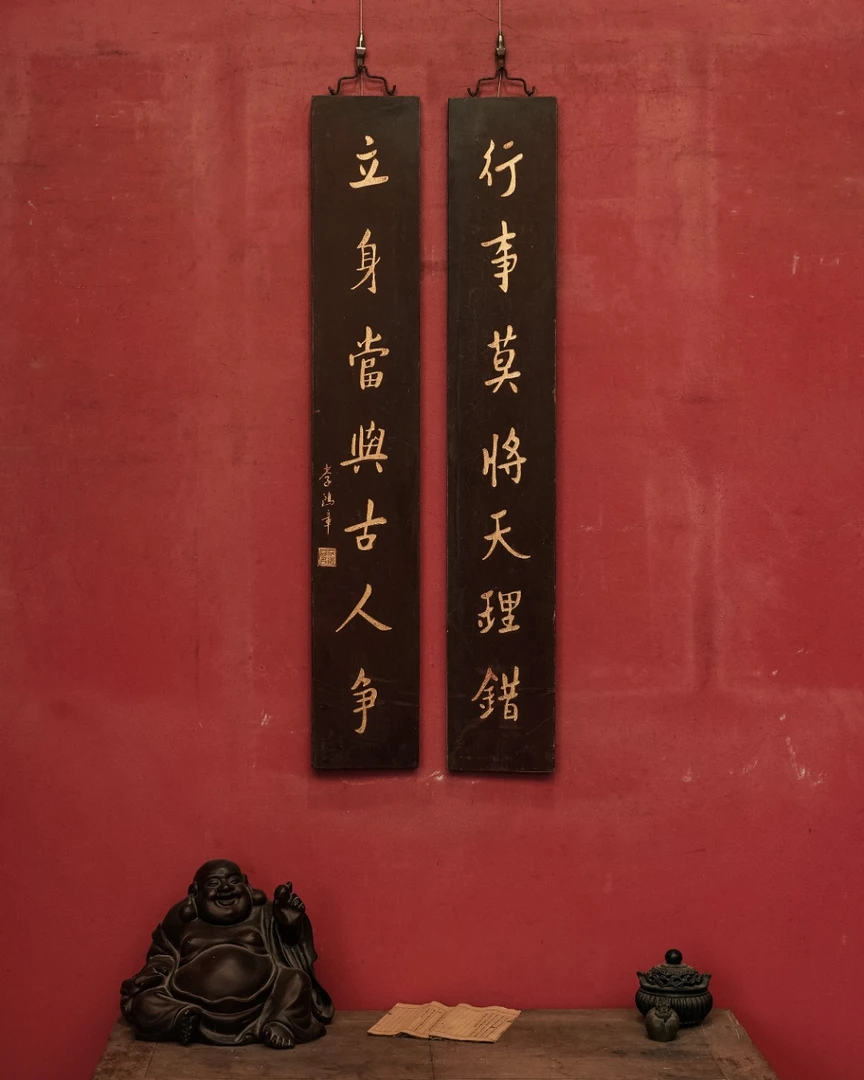 行事莫將天理錯
立身當與古人争
李鴻章